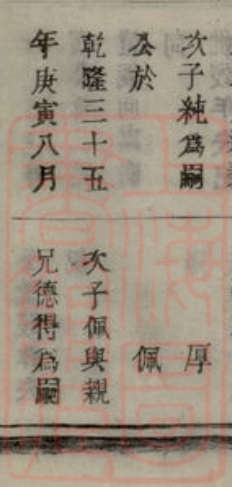 次子純爲嗣
公於
乾隆三十五
年庚寅八月
厚
佩
次子佩與親
兄德得爲嗣